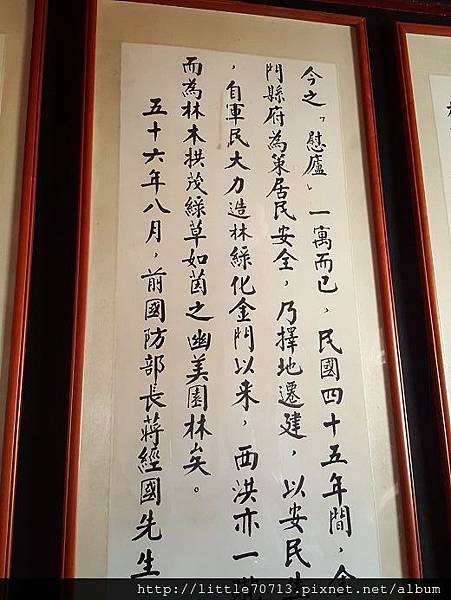 今之「慰廬」一寓而已，民國四十五年間，金
門縣府為策居民安全，乃擇地遷建，以安民生
，自軍民大力造林綠化金門以来，西洪亦一
而為林木拱茂綠草如茵之幽美園林矣。
五十六年八月，前國防部長蔣經國先生
http://little70713.pixnet.net/album